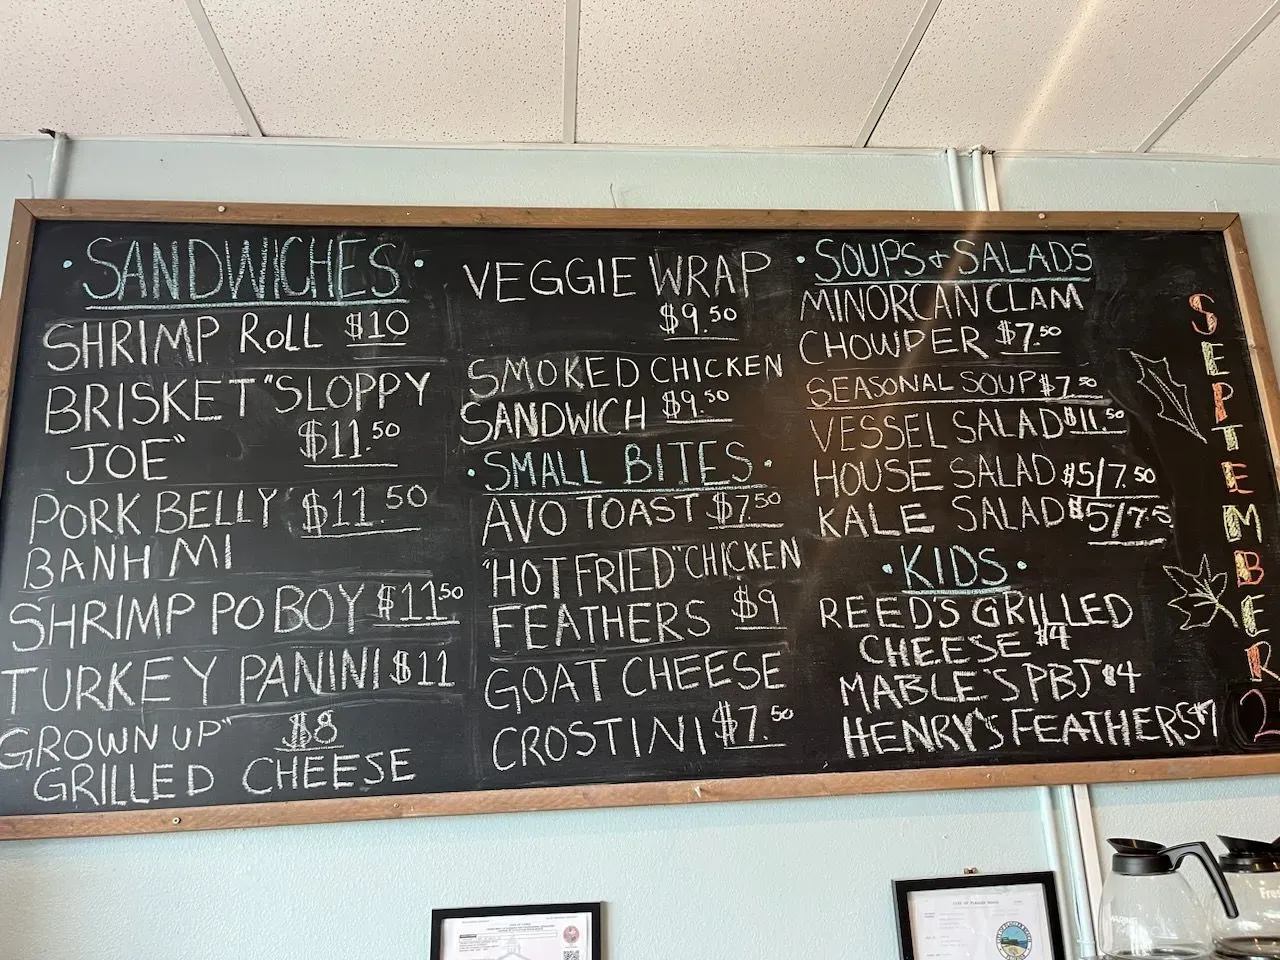 • SANDWICHES •
SHRIMP ROLL $10
BRISKET "SLOPPY
JOE" $11.50
PORK BELLY $11.50
BANH MI
SHRIMP PO BOY $11.50
TURKEY PANINI $11
GROWN UP" $8
GRILLED CHEESE
VEGGIE WRAP
$9.50
SMOKED CHICKEN
SANDWICH $9.50
• SMALL BITES •
AVO TOAST $7.50
"HOT FRIED" CHICKEN
FEATHERS $9
GOAT CHEESE
CROSTINI $7.50
• SOUPS + SALADS
MINORCAN CLAM
CHOWDER $7.50
SEASONAL SOUP $7.50
VESSEL SALAD $11.50
HOUSE SALAD $5/7.50
KALE SALAD $5/7.5
• KIDS •
REED'S GRILLED
CHEESE $4
MABLE'S PBJ $4
HENRY'S FEATHERS $7
SEPTEMBER
2